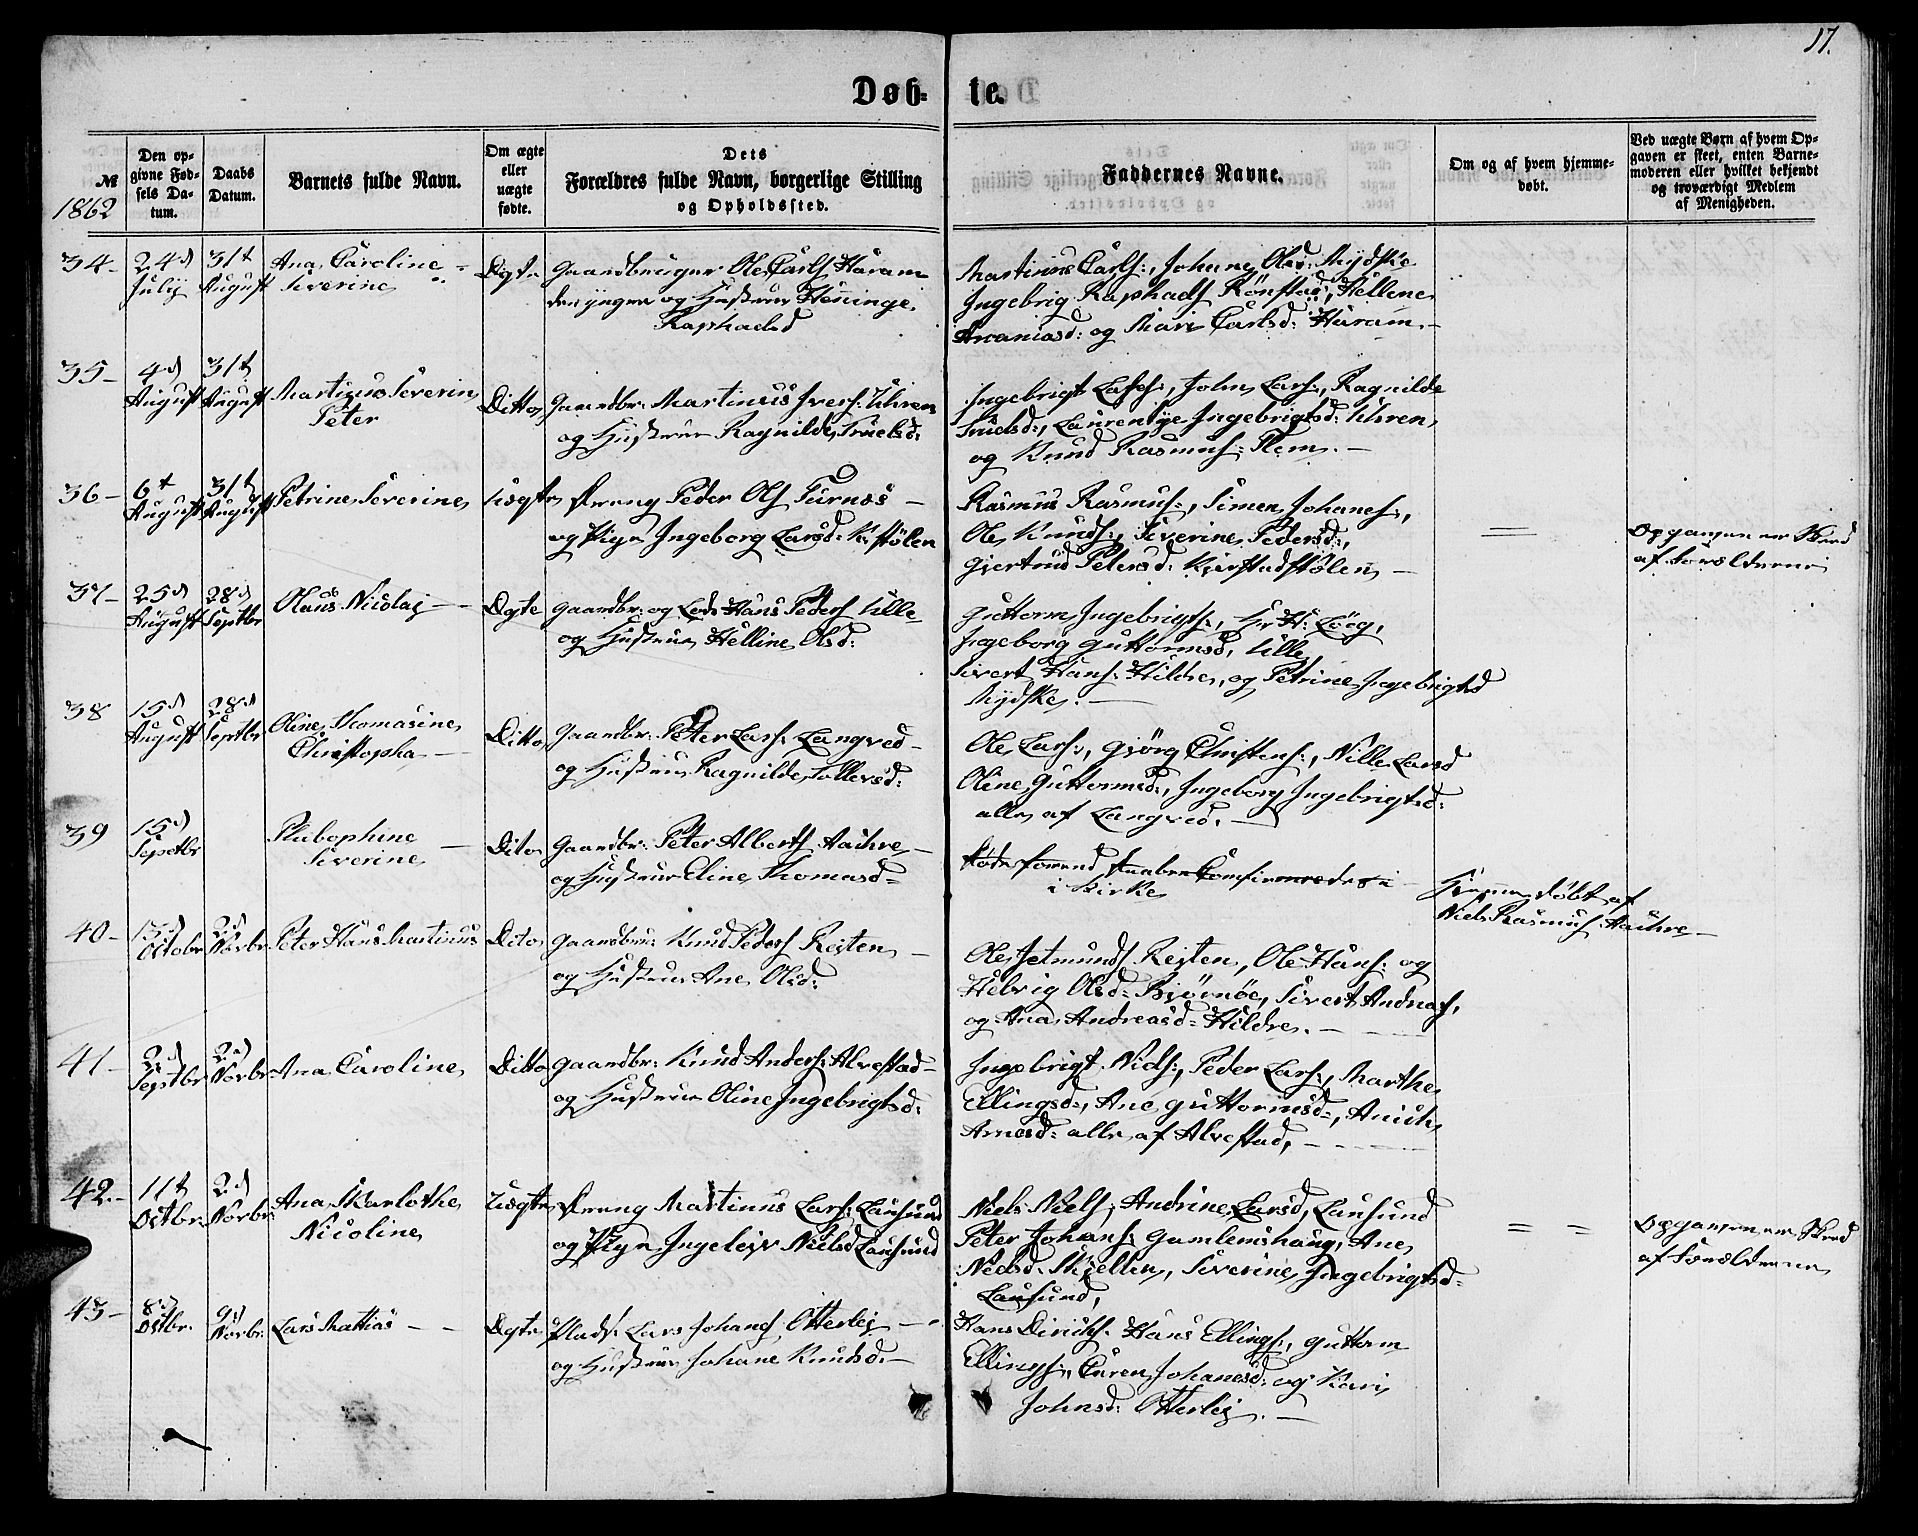 17.
Døb- te.
№
1862
Den op-
givne Fød-
sels Da-
tum.
Daabs
Datum.
Barnets fulde Navn.
Om ægte
eller
uægte
fødte.
Dets
Forældres fulde Navn, borgerlige Stilling
og Opholdssted.
Faddernes Navne.
Om og af hvem hjemme-
døbt.
Ved uægte Børn af hvem Op-
gaven er skeet, enten Barne-
moderen eller hvilket bekjendt
og troværdigt Medlem
af Menigheden.
34-
24d
Julij
31t
August
Ana Caroline
Severine
Ægte
Gaardbruger Ole Carls Haram
den yngre og Hustrue Henninge
Raphaelsd
Martinus Carls:, Johane Olsd: Mydske
Ingebrig Raphaels Rönstad, Hellene
Ananiasd: og Mari Carlsd: Haram.
35-
4d
August
31t
August
Martinus Severin
Peter
Ditto
Gaardbr: Martinus Ivers: Uhren
og Hustrue Ragnilde Truelsd:
Ingebrigt Lasses:, John Lars:, Ragnilde
Truelsd:, Laurentze Ingebrigtsd: Uhren,
og Knud Rasmus: Flem.
36-
6t
August
31t
August
Petrine Severine
Uægte
Dreng Peder Ols Furnes
og Pige Ingeborg Larsd: K:stölen
Rasmus Rasmus:, Simen Johanes:,
Ole Knuds:, Severine Pedersd:,
Gjertrud Petersd: Kjerstadstölen
=
Opgaven er Skeed
af Forælderne
37-
25d
August
28d
Septbr
Olaus Nicolaj
Ægte
Gaardbr: og Lods Hans Peders Ulle
og Hustrue Helline Olsd:
Guttorm Ingebrigts:, Hr H: Löeg,
Ingeborg Guttormsd, Ulle,
Sivert Hans: Hildre, og Petrine Ingebrigtsd
Mydske.
38
15d
August
28d
Septbr
Oline Thomasine
Christopha
Ditto
Gaardbr: Peter Lars: Langved
og Hustrue Ragnilde Tollevsd:
Ole Lars:, Gjörg Christens:, Nille Larsd
Oline Guttormsd:, Ingeborg Ingebrigtsd:
alle af Langved.
39
15d
Septbr
Severine
Ditto
Gaardbr: Peter Alberts Aachre
og Hustrue Eline Thomasd=
i Kirke
Hjemme döbt af
Niels Rasmus: Aachre
40-
13d
Octobr
2d
Novbr
Peter Hans Martinus
Ditto
Gaardbru: Knud Peders Rejten
og Hustrue Ane Olsd:
Ole Jetmunds Rejten, Ole Hans: og
Helvig Olsd= Bjørnöe, Sivert Andreas,
og Ana Andreasd= Hildre.
41-
2d
Septbr
2d
Novbr
Ana Caroline
Ditto
Gaardbr: Knud Anders: Alvestad
og Hustrue Oline Ingebrigtsd:
Ingebrigt Niels:, Peder Lars:, Marthe
Ellingsd:, Ane Guttormsd=,
Arnesd: alle af Alvestad,
42.-
11t
Octbr:
2d
Novbr
Ana Skarlothe
Nicoline
Uægte
Dreng Martinus Lars: Lausund
og Pige Ingeleiv Nielsd Lausund
Niels Niels:, Andrine Larsd, Lausund
Peter Johans: Gamlemshaug, Ane
Nielsd. Skjellen, Severine Ingebrigtsd=
Lausund,
= =
Opgaven er Skeed
af Forælderne
43-
8d
Octbr.
9d
Novbr:
Lars Mattias
Ægte
Plads: Lars Johanes Otterlej
og Hustrue Johane Knudsd.
Hans Diriks: Hans Ellings:, Guttorm
Ellings:, Caren Johanesd: og Kari
Johnsd: Otterlej.